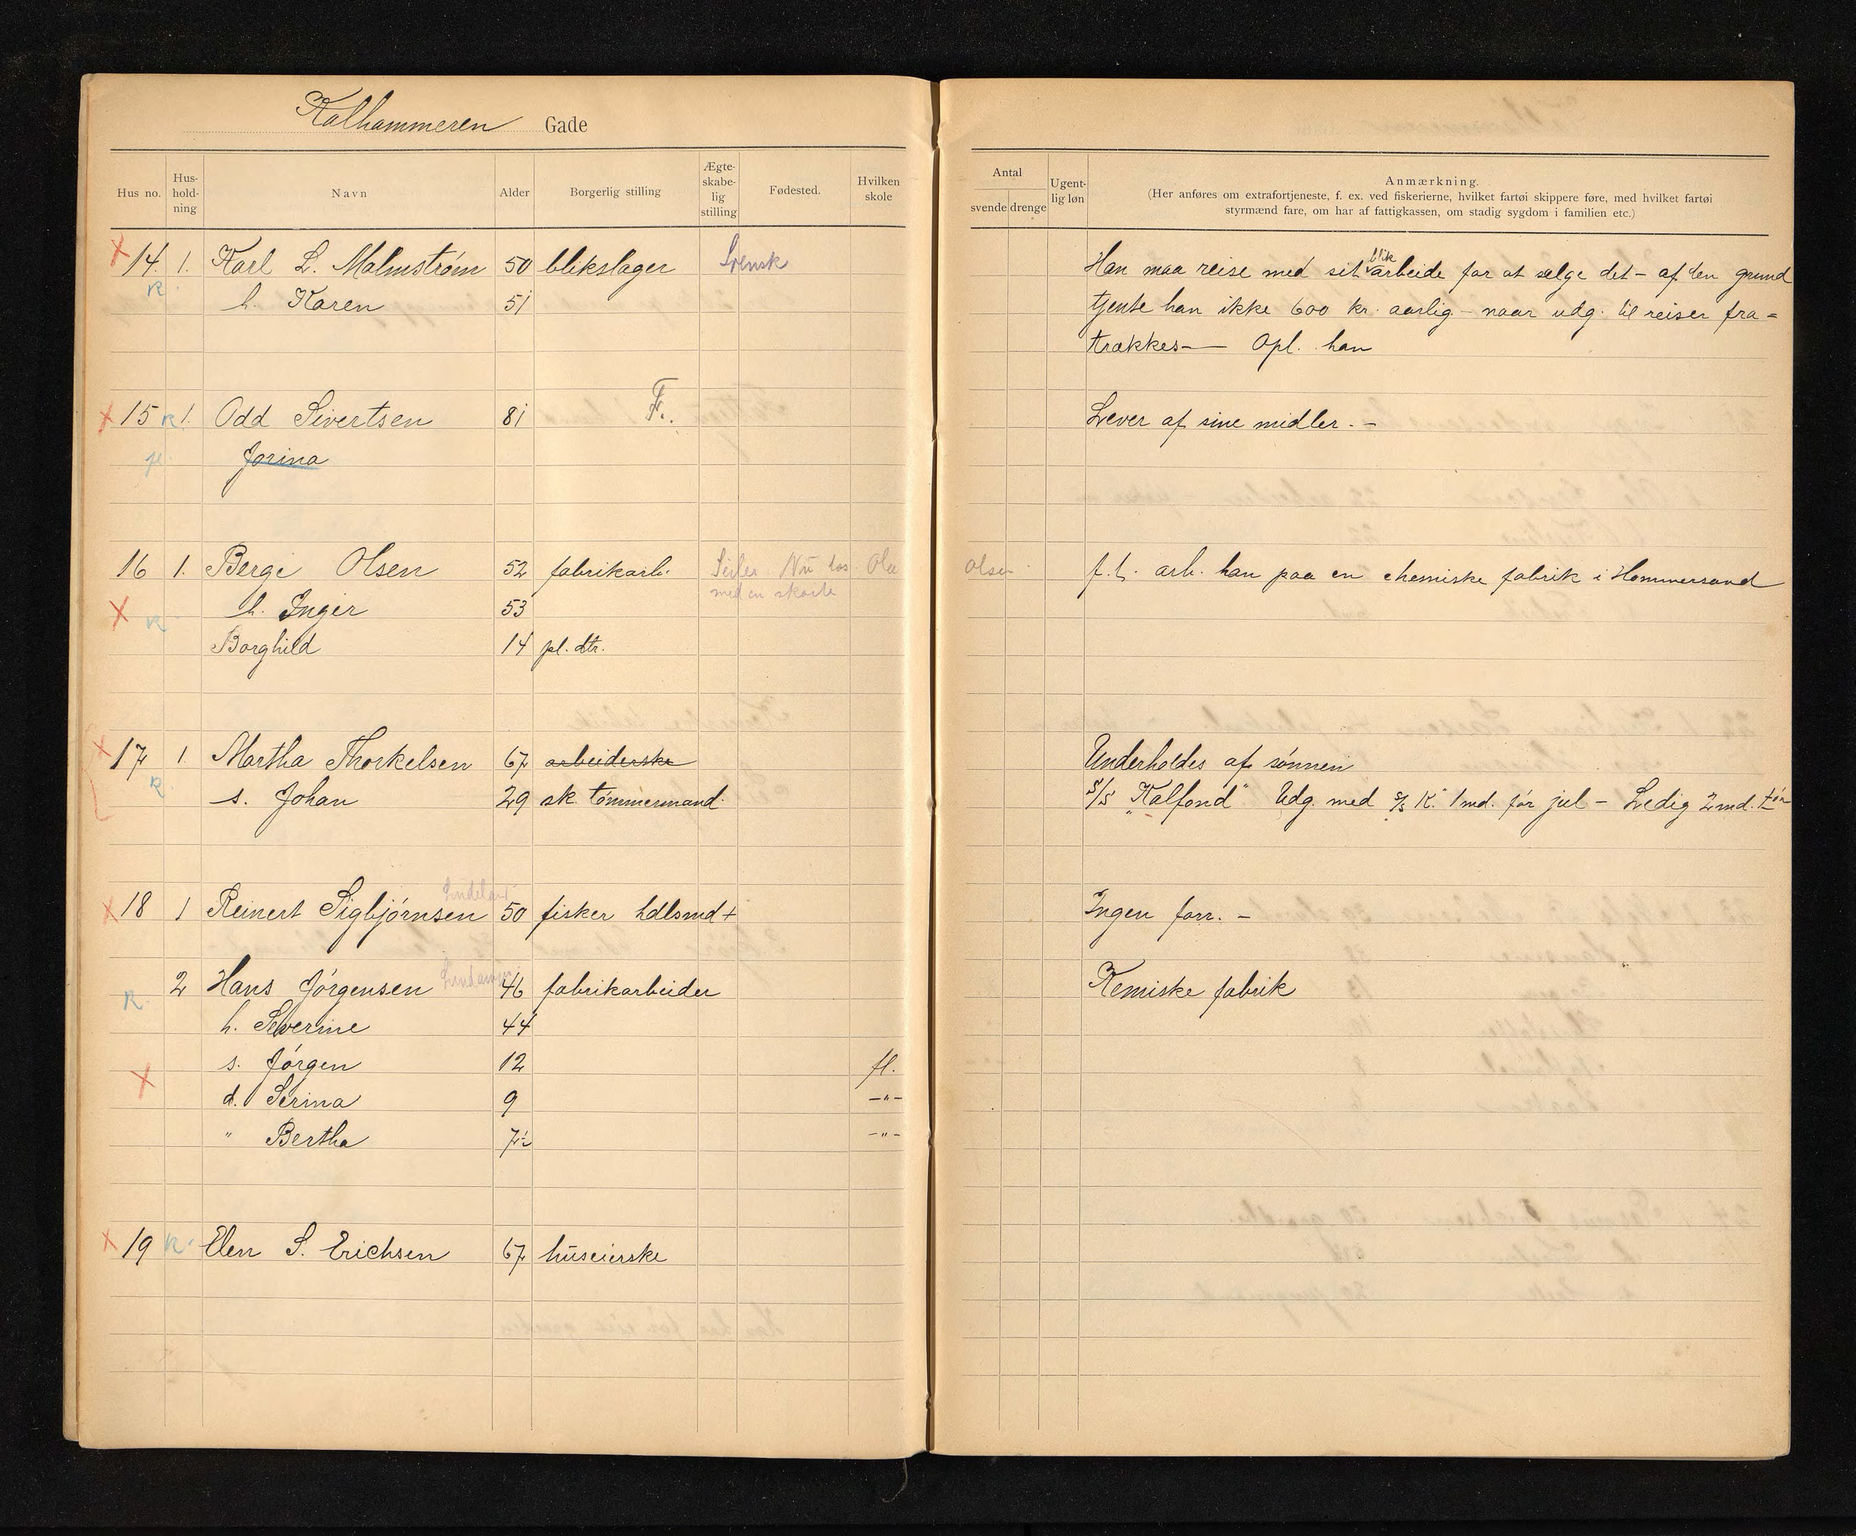 Kalhammeren Gade
Hus no. Hus-hold-ning Navn Alder Borgerlig stilling Ægte-skabe-lig stilling Fødested. Hvilken skole
Antal svende drenge Ugent-lig løn Anmærkning.
(Her anføres om extrafortjeneste, f. ex. ved fiskerierne, hvilket fartøi skippere føre, med hvilket fartøi
styrmænd fare, om har af fattigkassen, om stadig sygdom i familien etc.)
x 14. 1. Karl L. Malmstrøm 50 blikslager Svensk Han maa reise med sit blikarbeide for at sælge det – af den grund
R. h. Karen 51 tjente han ikke 600 kr. aarlig – naar udg. til reiser fra=
trækkes — Opl. han
x 15 R 1. Odd Sivertsen 81 F. Lever af sine midler. –
fl. Jorina
16 1. Berge Olsen 52 fabrikarb. Seiler Nu hos Ole Olsen f. t. arb. han paa en chemiske fabrik i Hommersand
x R h. Inger 53 med en skøite
Borghild 14 pl. dtr.
x 17 1 Martha Thorkelsen 67 arbeiderske Underholdes af sønnen
R. s. Johan 29 sk. tømmermand. S/S "Kalfond" Udg. med S/S K. 1 md. før jul – Ledig 2 md. før
x 18 1 Reinert Sigbjørnsen 50 fisker hdlsmd + Ingen forr. –
R. 2 Hans Jørgensen 46 fabrikarbeider Kemiske fabrik
h. Severine 44
s. Jørgen 12 fl.
x d. Serina 9 –"–
" Bertha 7½ –"–
x 19 R. Elen S. Erichsen 67 huseierske